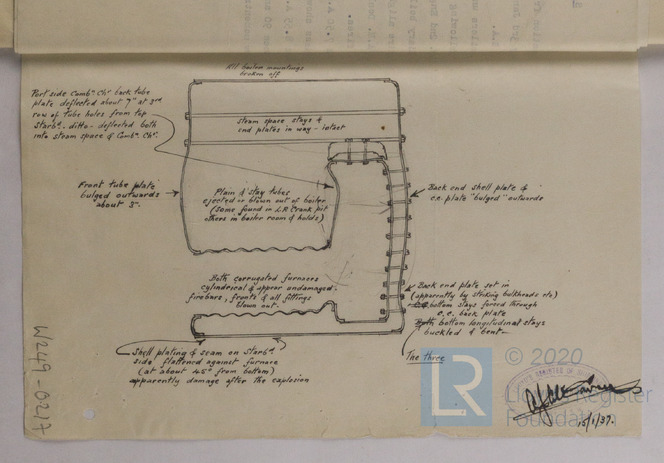 All boiler mountings
broken off.
Port side Comb^n. Ch^r. back tube
plate deflected about 7" at 3rd
row of tube holes from top
Starb^d. - ditto - deflected both
into steam space of Comb^n. Ch^r.
steam space stays &
end plates in way - intact
Front tube plate
bulged outwards
about 3".
Plain & stay tubes
ejected or blown out of boiler
(some found in L.R. Crank pit
others in boiler room & holds)
Back end shell plate &
c.c. plate "bulged" outwards
Both corrugated furnaces
cylindrical & appear undamaged.
firebars, fronts & all fittings
blown out.
Back end plate set in
(apparently by striking bulkheads etc)
bottom stays forced through
c.c. back plate
Both bottom longitudinal stays
buckled & bent
The three
Shell plating & seam on Starb^d.
side flattened against furnace
(at about 45° from bottom)
apparently damage after the explosion
W249-0217
LR
© 2020
Lloyd's Register
Foundation
15/1/37.